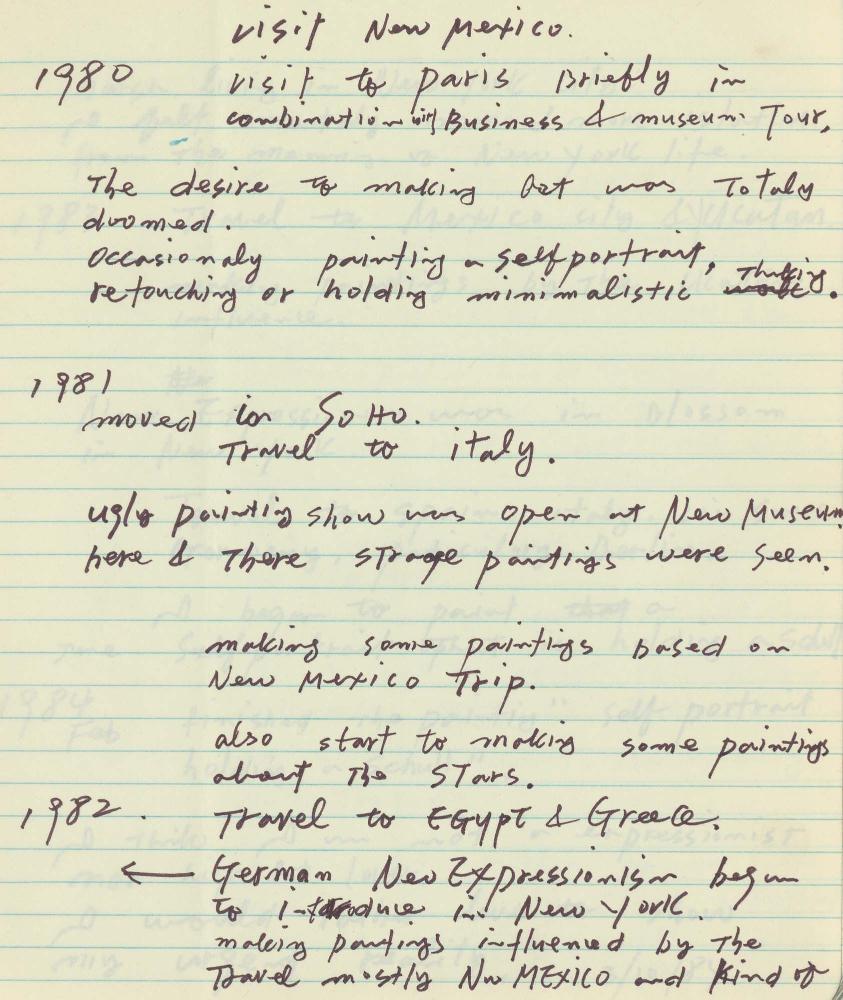 visit New Mexico.
1980 visit to paris Briefly in
combination with Business & museum Tour,
The desire to making Art was Totaly
doomed.
Occasionaly painting a self portrait,
retouching or holding minimalistic Thinking.
1981
moved in SoHo.
Travel to italy.
ugly painting show was open at New Museum
here & There strage paintings were seen.
making some paintings based on
New Mexico Trip.
also start to making some paintings
about The STars.
1982. Travel to EGypt & Greece.
← German Neo Expressionism begun
to introduce in New York.
making paintings influenced by The
Travel mostly Nw MEXICO and Kind of